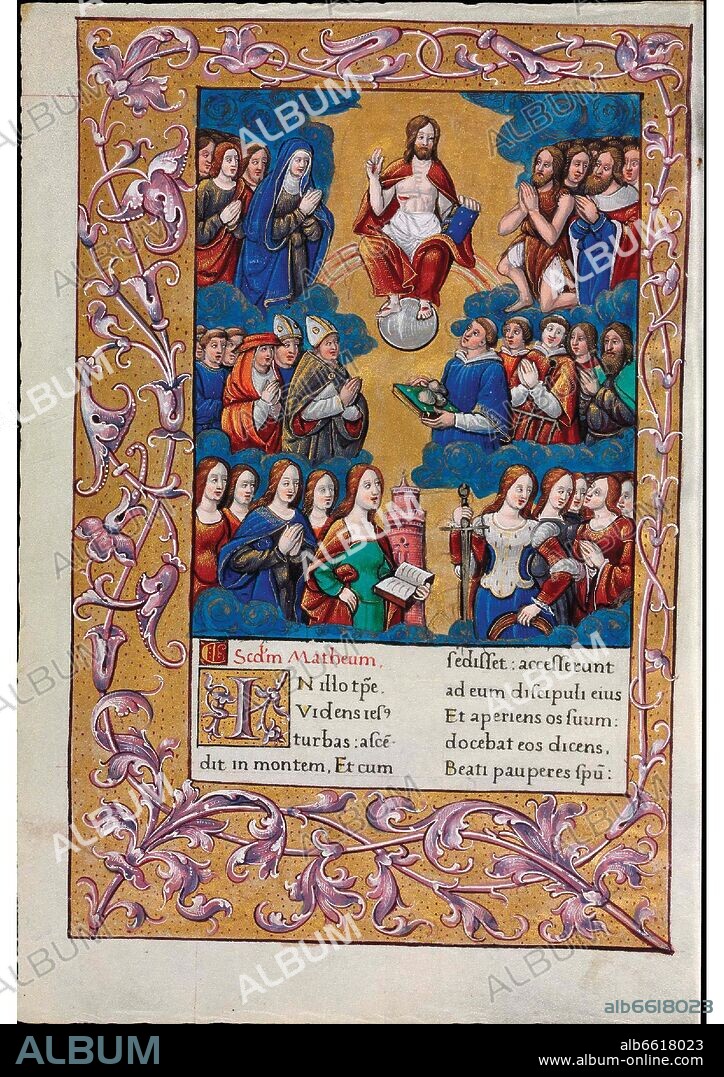 Scd̄m Matheum.
IN illo tp̄e.
Videns ies9
turbas : ascē-
dit in montem, Et cum
sedisset : accesserunt
ad eum discipuli eius
Et aperiens os suum:
docebat eos dicens,
Beati pauperes spū:
alb6618023
ALBUM
alb6618023
www.album-online.com